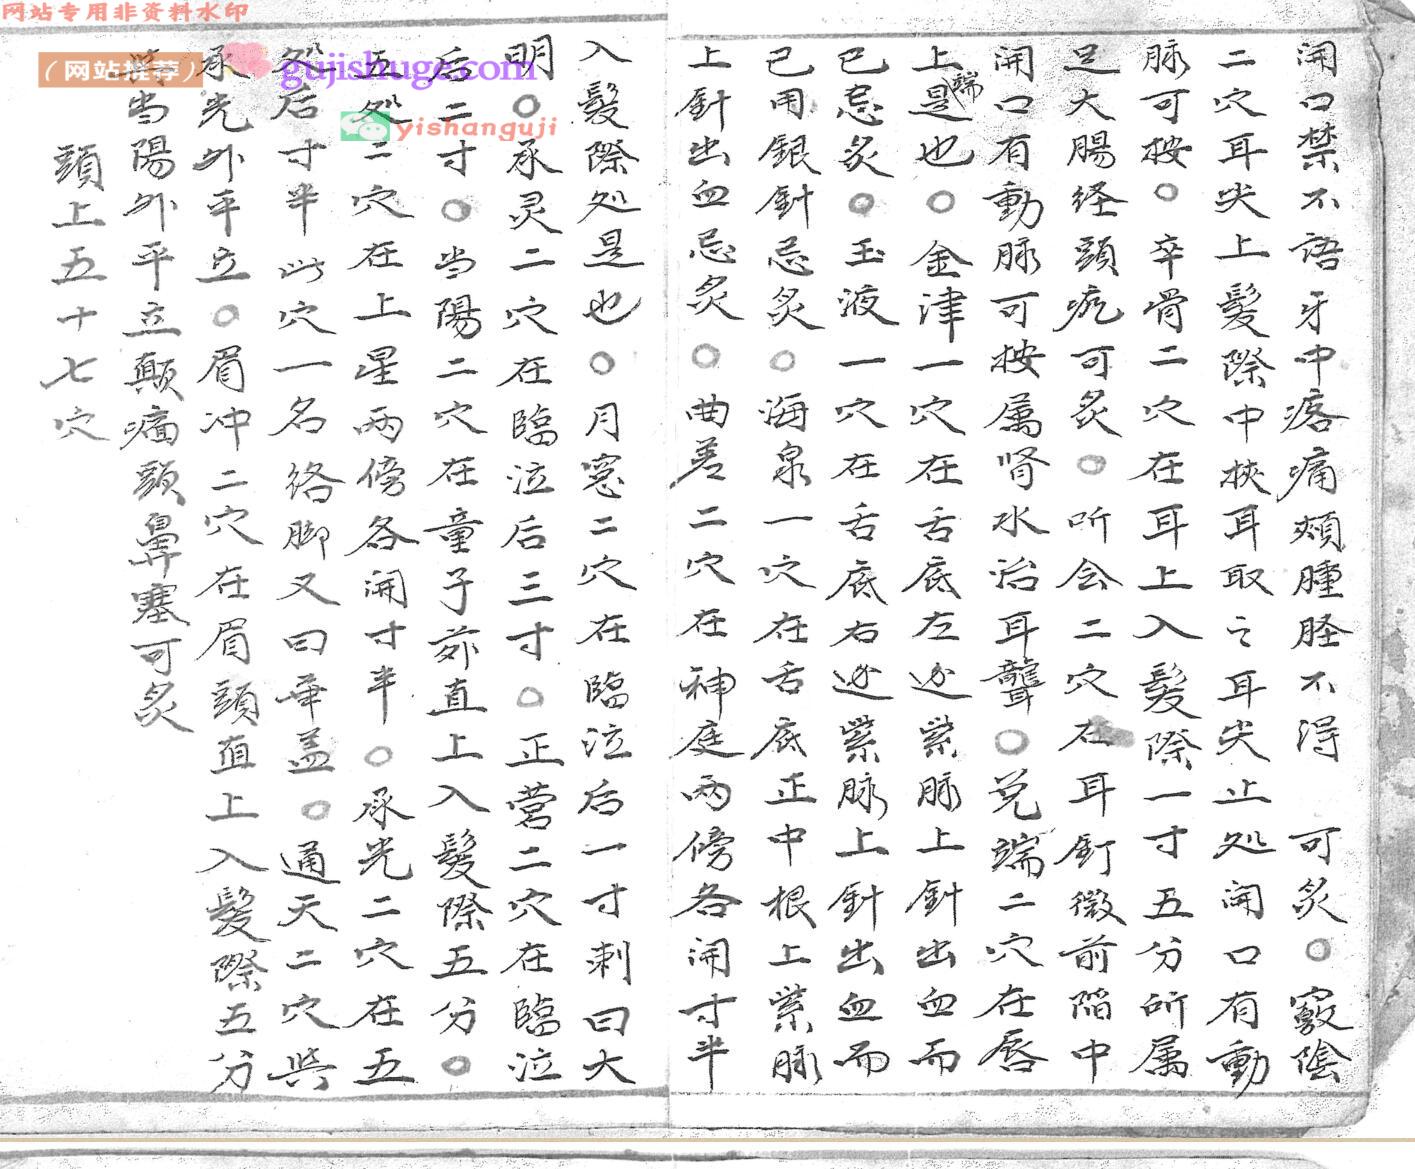 网站专用非资料水印
（网站推荐）
gujishuge.com
yishanguji
開口禁不語牙中疼痛頰腫胫不得 可炙○竅陰
二穴耳尖上髮際中挾耳取之耳尖止处開口有動
脉可按○卒骨二穴在耳上入髮際一寸五分所属
足大腸経頭疙可炙○听会二穴在耳釘微前陷中
開口有動脉可按属肾水治耳聾○兑端二穴在唇
上端是也○金津一穴在舌底左边紫脉上針出血而
已忌炙○玉液一穴在舌底右边紫脉上針出血而
已用銀針忌炙○海泉一穴在舌底正中根上紫脉
上針出血忌炙○曲差二穴在神庭两傍各開寸半
入髮際处是也○月窓二穴在臨泣后一寸刺曰大
明○承灵二穴在臨泣后三寸○正营二穴在臨泣
后二寸○当陽二穴在童子前直上入髮際五分○
五处二穴在上星两傍各開寸半○承光二穴在五
处后寸半此穴一名络脚又曰華盖○通天二穴與
承光外平立○眉冲二穴在眉頭直上入髮際五分
與当陽外平立顛痛頭鼻塞可炙
頭上五十七穴